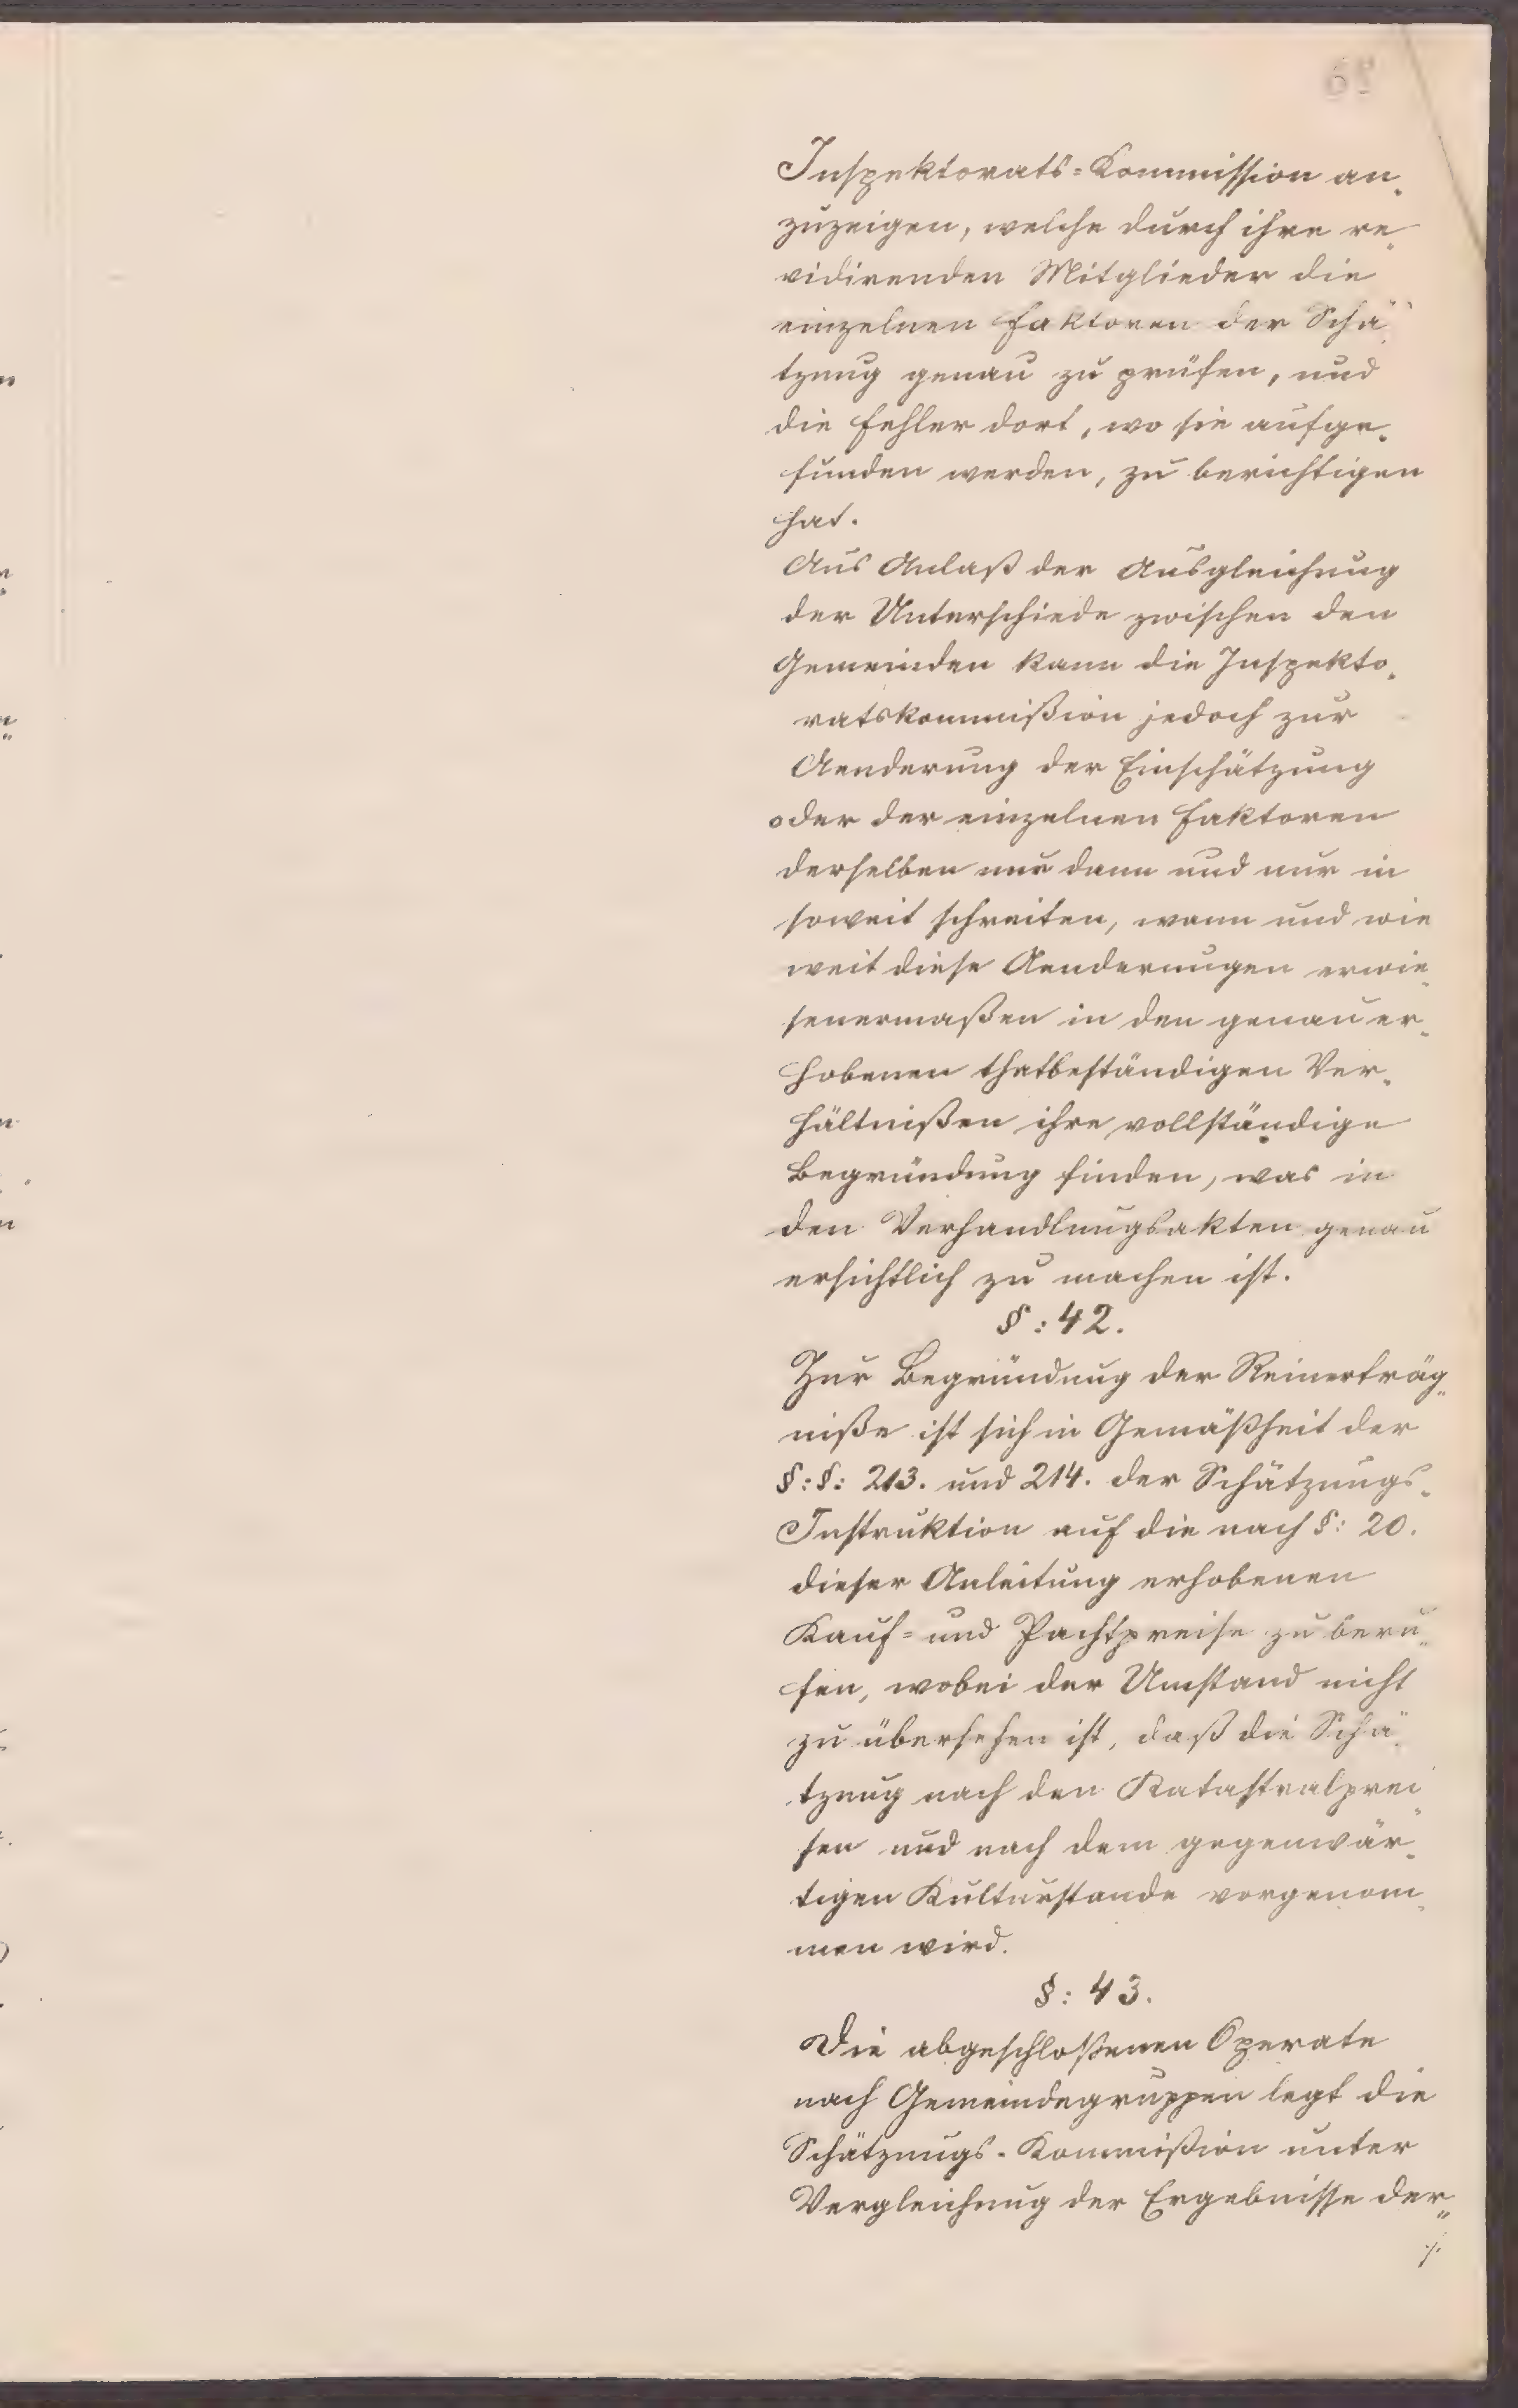 Inspektorats=Kommission an„
zuzeigen, welche durch ihre re„
vidirenden Mitglieder die
einzelnen Faktoren der Schä„
tzung genau zu prüfen, und
die Fehler dort, wo sie aufge„
funden werden, zu berichtigen
hat.
Aus Anlaß der Ausgleichung
der Unterschiede zwischen den
Gemeinden kann die Inspekto„
ratskommißion jedoch zur
Aenderung der Einschätzung
oder der einzelnen Faktoren
derselben nur dann und nur in
soweit schreiten, wann und wie
weit diese Aenderungen erwie„
senermaßen in den genau er„
hobenen thatbeständigen Ver„
hältnißen ihre vollständige
Begründung finden, was in
den Verhandlungsakten genau
ersichtlich zu machen ist.
§: 42.
Zur Begründung der Reinerträg„
niße ist sich in Gemäßheit der
§:§: 213. und 214. der Schätzungs„
Instruktion auf die nach §: 20.
dieser Anleitung erhobenen
Kauf= und Pachtpreise zu beru„
fen, wobei der Umstand nicht
zu übersehen ist, daß die Schä„
tzung nach den Katastralprei„
sen und nach dem gegenwär„
tigen Kulturstande vorgenom„
men wird.
§: 43.
Die abgeschloßenen Operate
nach Gemeindegruppen legt die
Schätzungs-Kommißion unter
Vergleichung der Ergebnisse der„
./.